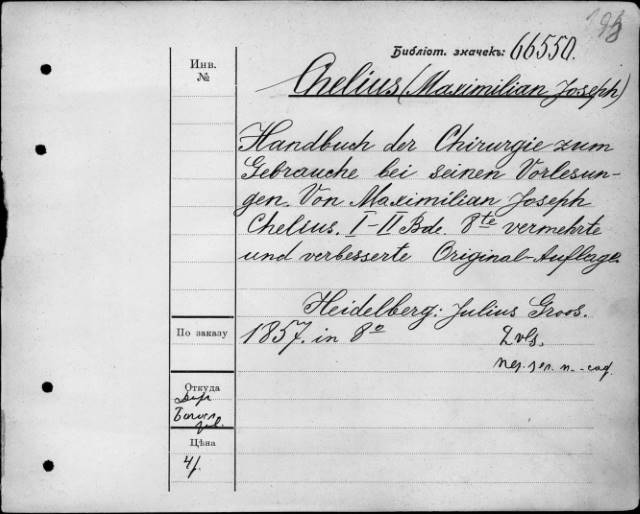 Библіот. значекъ: 66550.
Инв.
№
Chelius (Maximilian Joseph)
Handbuch der Chirurgie zum
Gebrauche bei seinen Vorlesun-
gen. Von Maximilian Joseph
Chelius. I-II Bde. 8te vermehrte
und verbesserte Original-Auflage.
Heidelberg: Julius Groos.
По заказу
1857. in 8º
2 vls.
Откуда
Цѣна
4/.